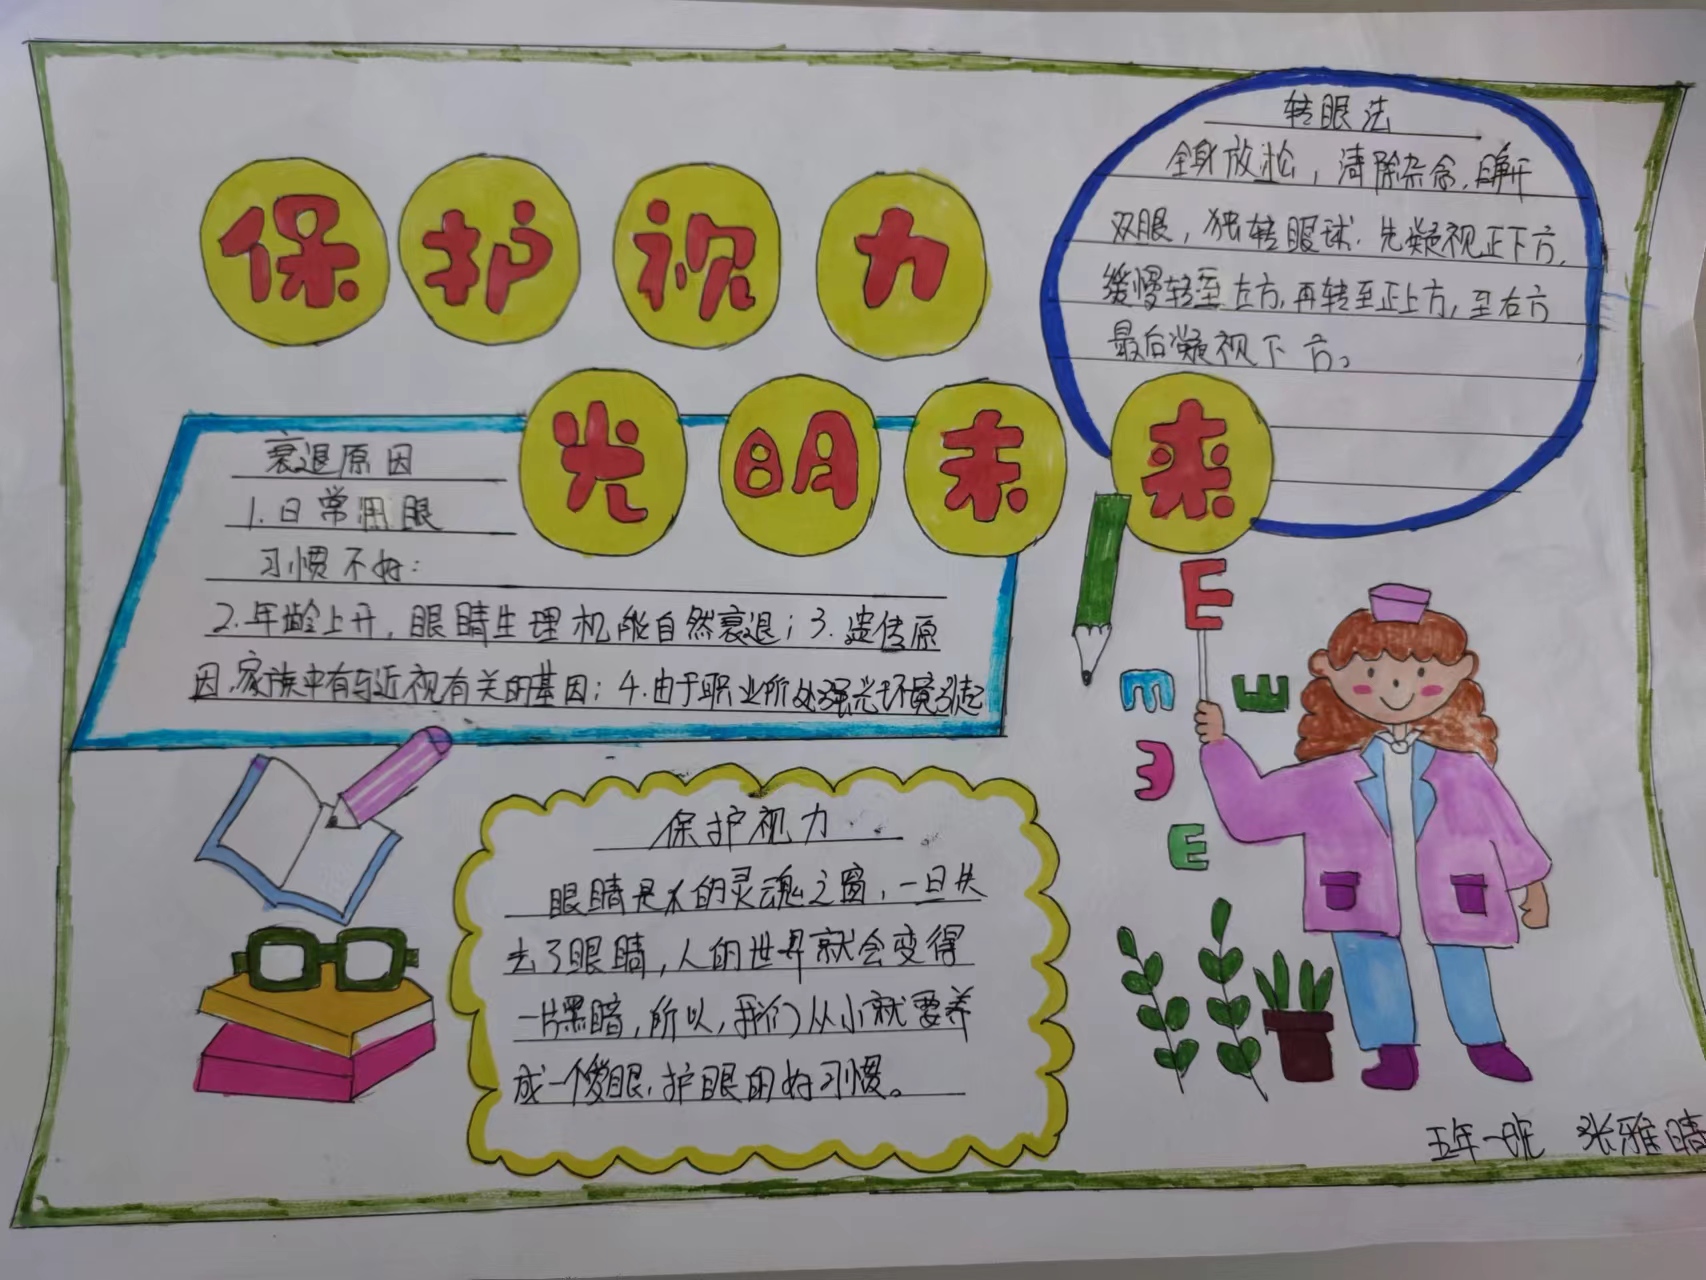 保护视力
光明未来
转眼法
全身放松，清除杂念，睁开
双眼，独转眼球。先凝视正下方，
缓慢转至左方，再转至正上方，至右方
最后凝视下方。
衰退原因
1.日常用眼
习惯不好；
2.年龄上升，眼睛生理机能自然衰退；3.遗传原
因，家族中有与近视有关的基因；4.由于职业所处强光环境引起
E
E
E
E
E
保护视力
眼睛是人的灵魂之窗，一旦失
去了眼睛，人的世界就会变得
一片黑暗，所以，我们从小就要养
成一个爱眼，护眼的好习惯。
五年一班 张雅晴